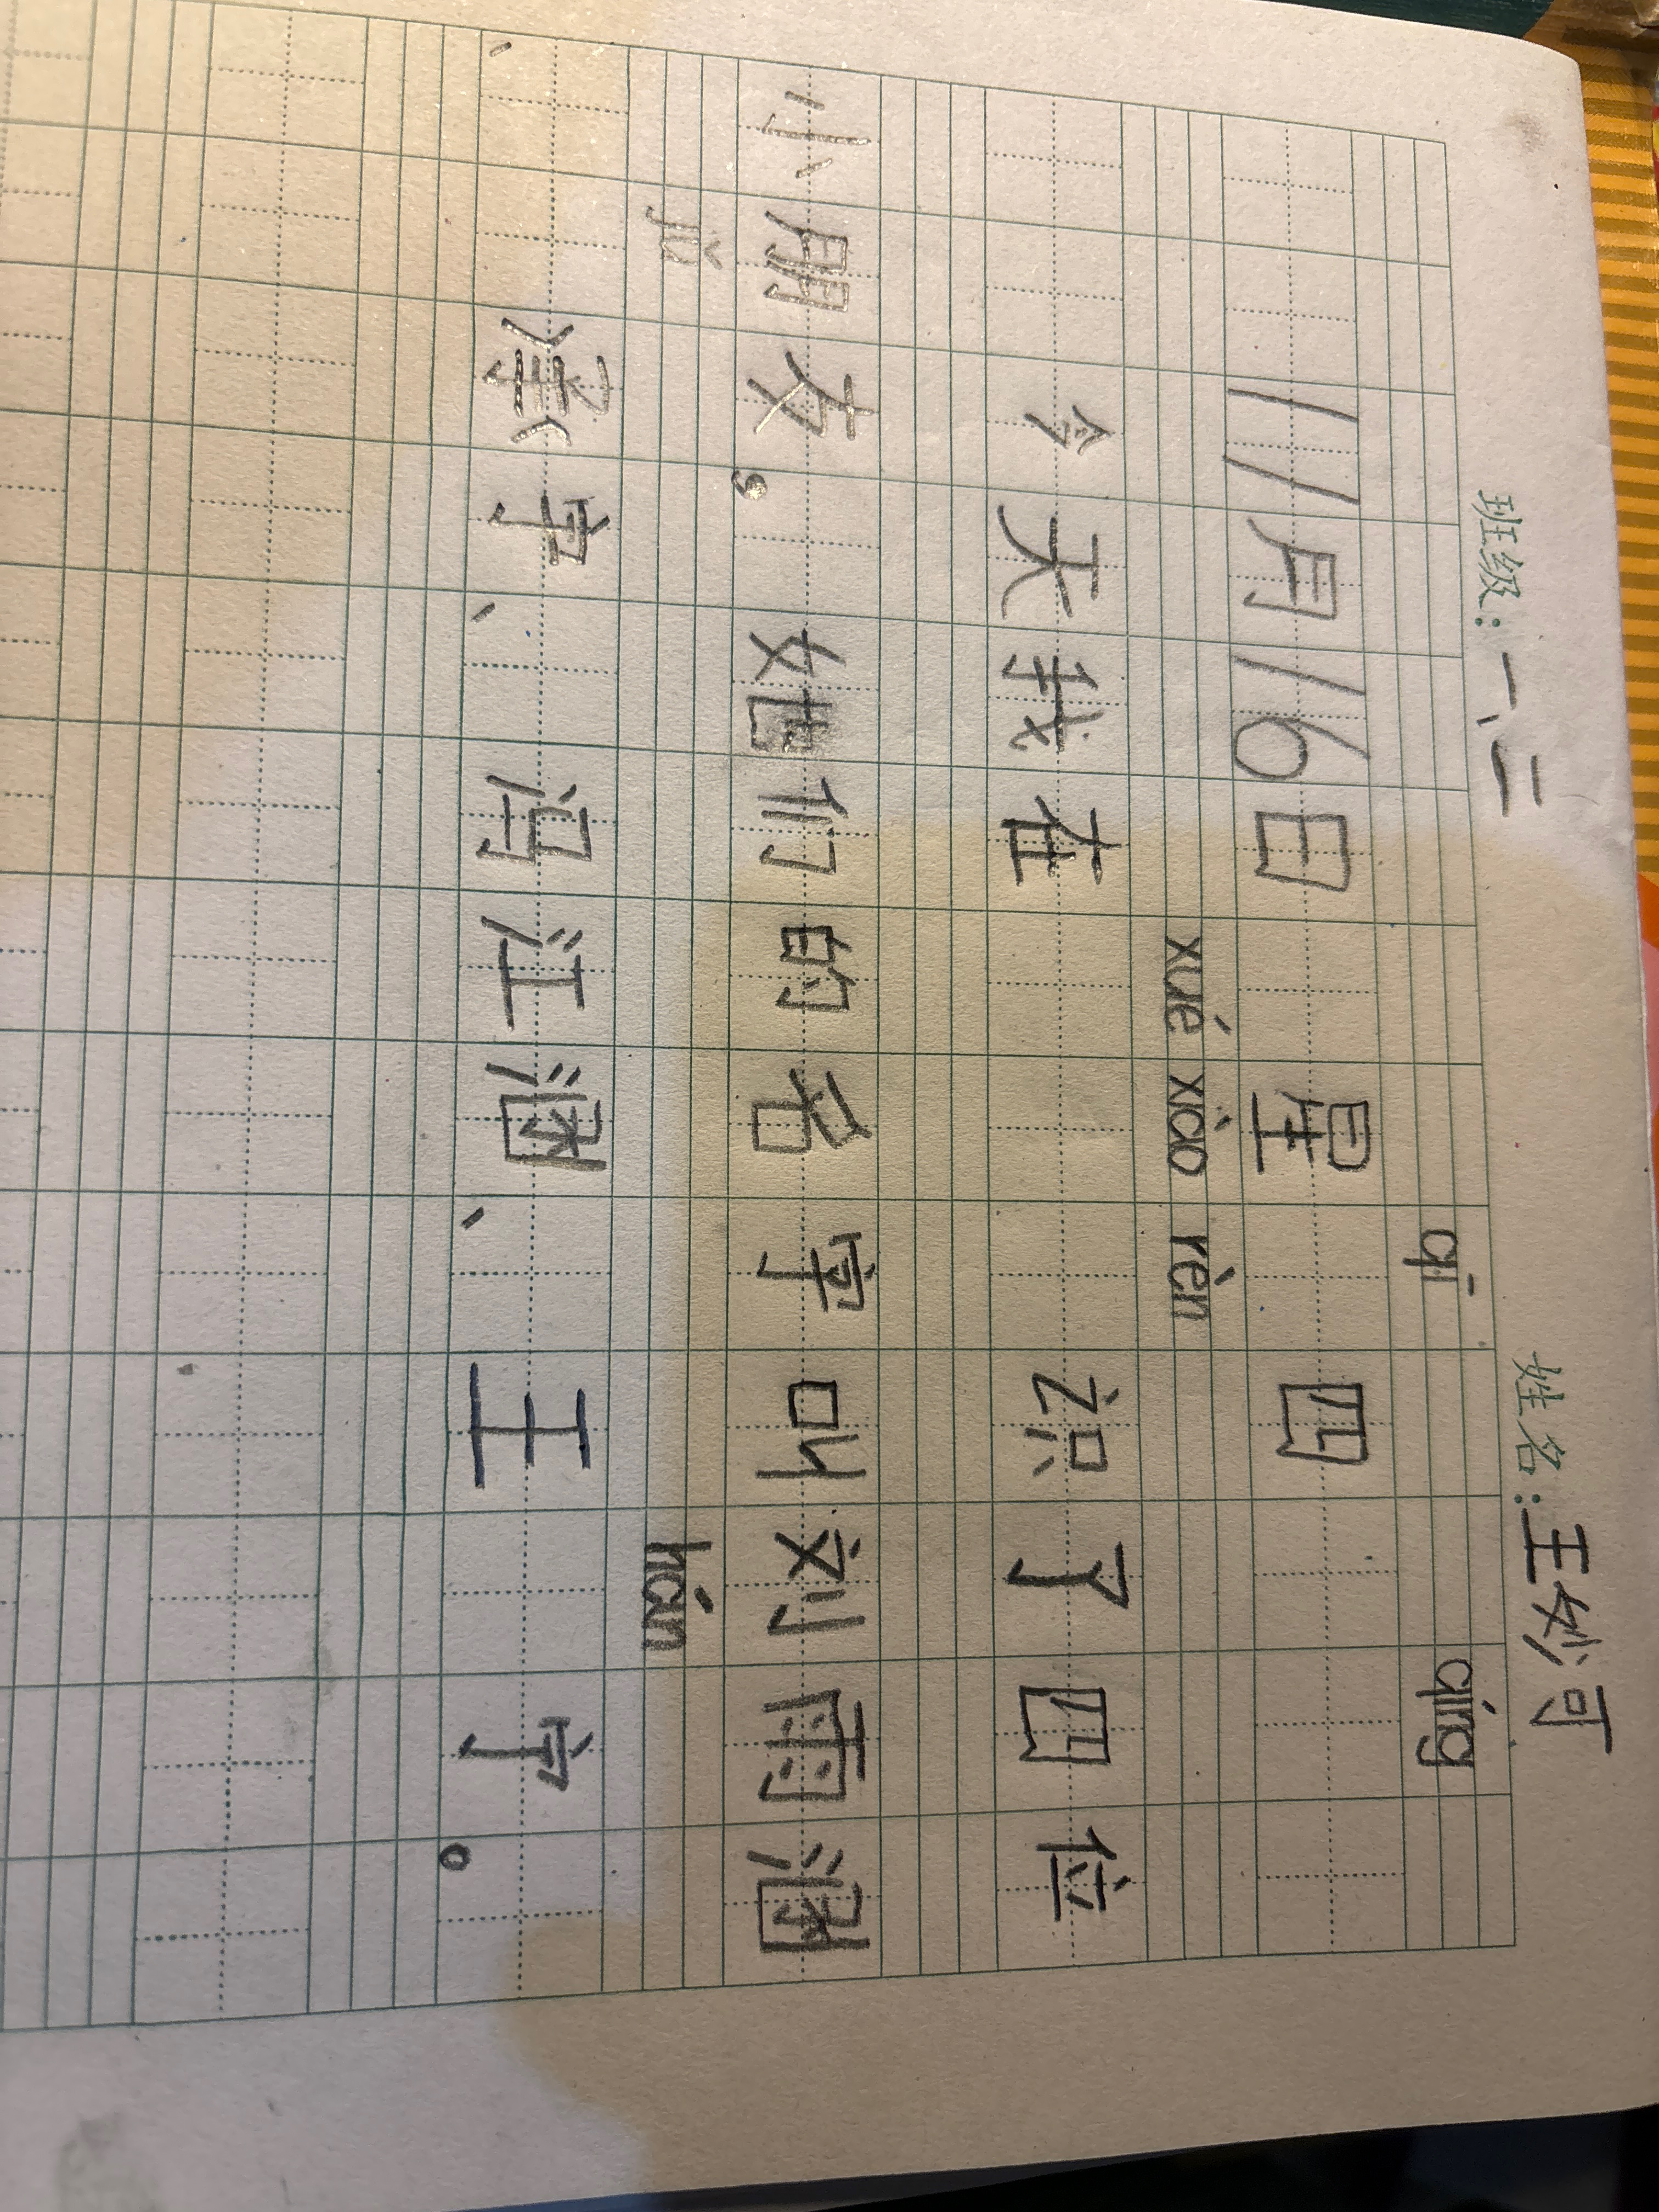 班级：一、二 姓名：王妙可
qī qíng
11月16日 星 四
xué xiào rèn
今天我在 识了四位
小朋友。她们的名字叫刘雨涵
hán
、 、 江涵、王 宁。